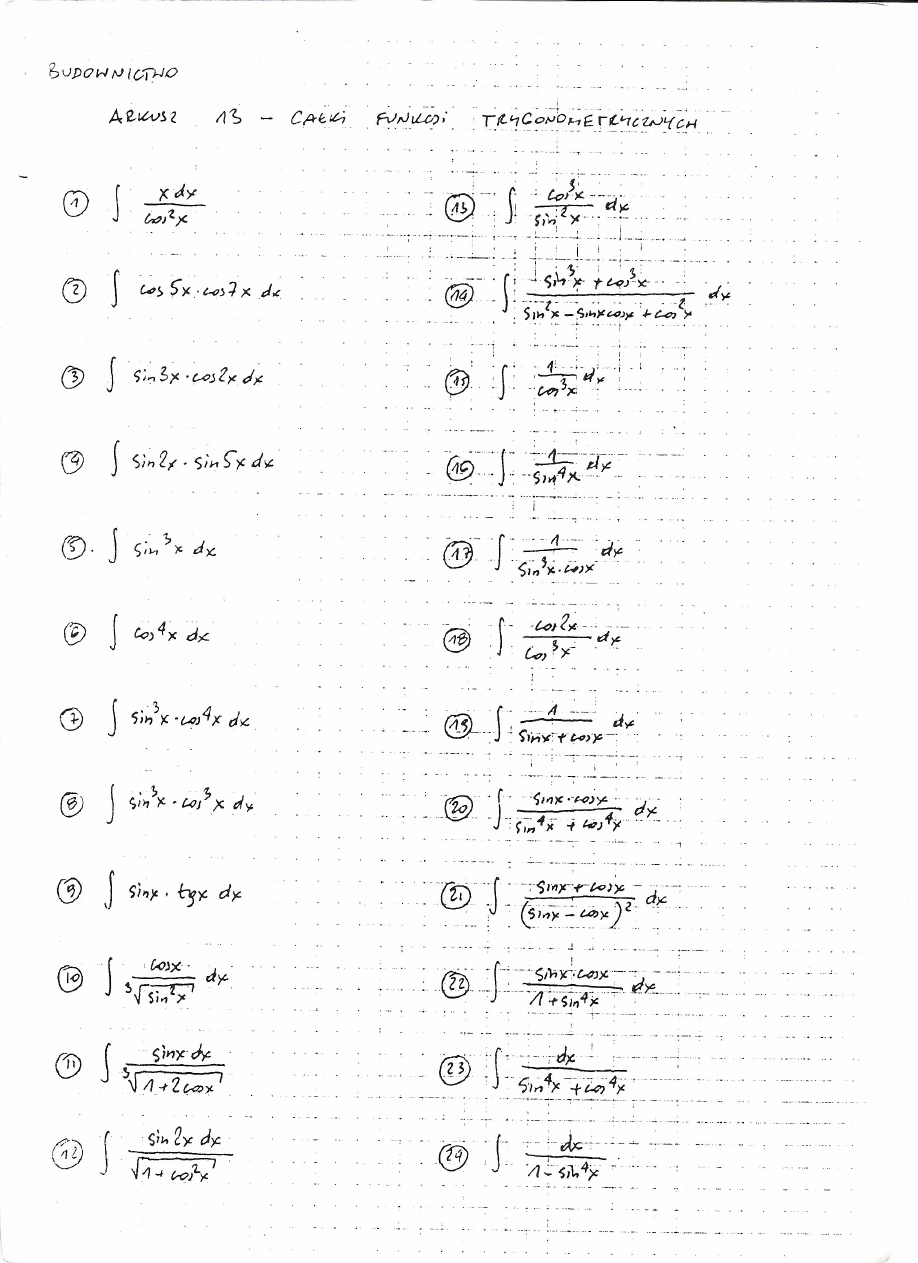 BUDOWNICTWO
ARKUSZ 13 – CAŁKI FUNKCJI TRYGONOMETRYCZNYCH
① ∫ x dx / cos²x
② ∫ cos5x·cos7x dx
③ ∫ sin3x·cos2x dx
④ ∫ sin2x·sin5x dx
⑤. ∫ sin³x dx
⑥ ∫ cos⁴x dx
⑦ ∫ sin³x·cos⁴x dx
⑧ ∫ sin³x·cos³x dx
⑨ ∫ sinx·tgx dx
⑩ ∫ cosx / ³√(sin²x) dx
⑪ ∫ sinx dx / ³√(1+2cosx)
⑫ ∫ sin2x dx / √(1+cos²x)
⑬ ∫ cos³x / sin²x dx
⑭ ∫ (sin³x + cos³x) / (sin²x – sinxcosx + cos²x) dx
⑮ ∫ 1 / cos³x dx
⑯ ∫ 1 / sin⁴x dx
⑰ ∫ 1 / (sin³x·cosx) dx
⑱ ∫ cos2x / cos³x dx
⑲ ∫ 1 / (sinx + cosx) dx
⑳ ∫ sinx·cosx / (sin⁴x + cos⁴x) dx
㉑ ∫ (sinx + cosx) / (sinx – cosx)² dx
㉒ ∫ sinx·cosx / (1+sin⁴x) dx
㉓ ∫ dx / (sin⁴x + cos⁴x)
㉔ ∫ dx / (1 – sin⁴x)